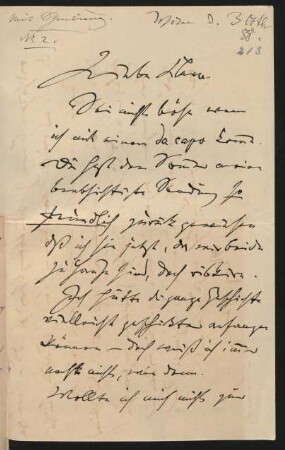 mit Sendung. Wien d. 3 Oktb.
No 2. 88.
213
Liebe Clara
Sei nicht böse wenn
ich mit einem da capo komme.
Du hast den Sommer meine
beabsichtigte Sendung so
freundlich zurück gewiesen
daß ich sie jetzt, da wir beide
zu Hause sind, doch riskire.
Ich hätte die ganze Geschichte
vielleicht geschickter anfangen
können – doch weiß ich immer
noch nicht, wie denn.
Wollte ich mich nicht gar